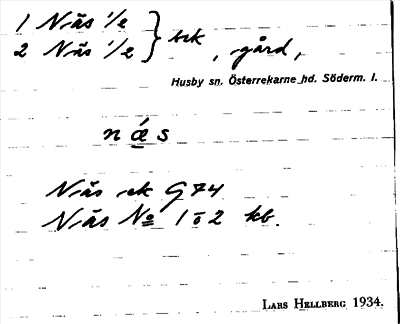 1 Näs 1/2 } bck, gård,
2 Näs 1/2
Husby sn. Österrekarne hd. Söderm. l.
n ǽ s
Näs ek G 74
Näs No 1 o 2 kb.
LARS HELLBERG 1934.